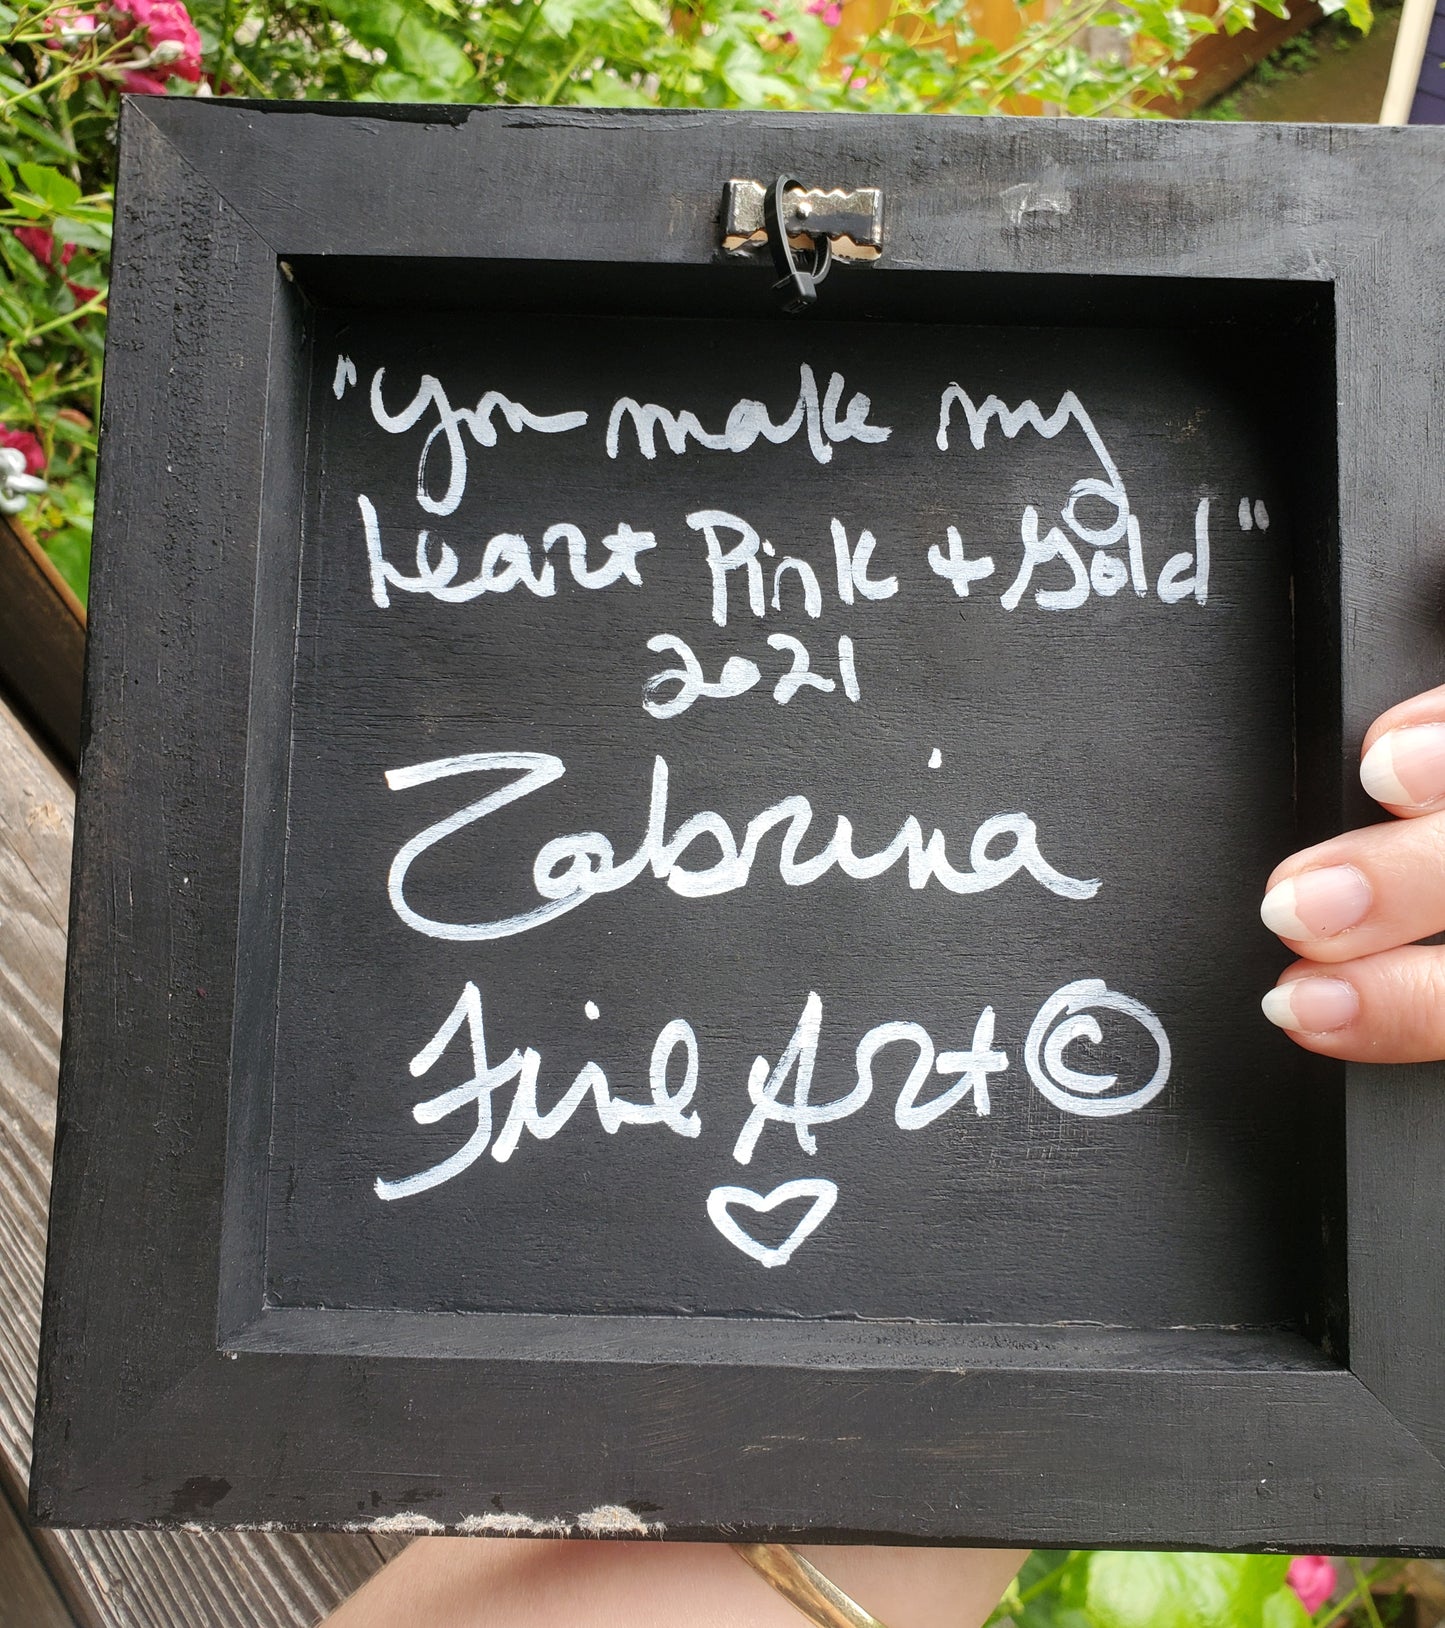 "You make my
heart Pink + Gold"
2021
Zabrina
Fine Art ©